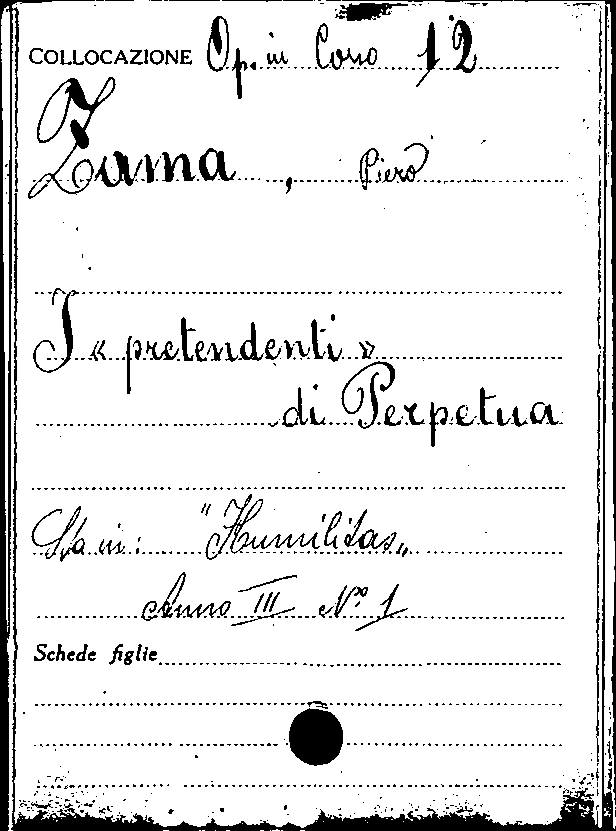 COLLOCAZIONE Op. in Corso 12
Zama, Piero
I « pretendenti »
di Perpetua
Sta in: "Humilitas„
Anno III Nº 1
Schede figlie